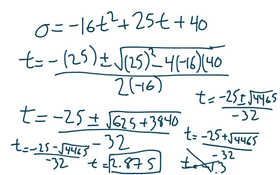 0 = -16t² + 25t + 40
t = -(25) ± √(25)² - 4(-16)(40
2(-16)
t = -25 ± √625 + 3840
-32
-25 ± √4465
-32
t = -25 - √4465
-32
t = 2.875
t = -25 + √4465
-32